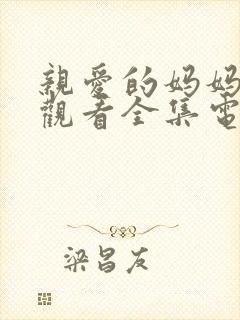 親愛的妈妈
觀看全集電
梁昌友